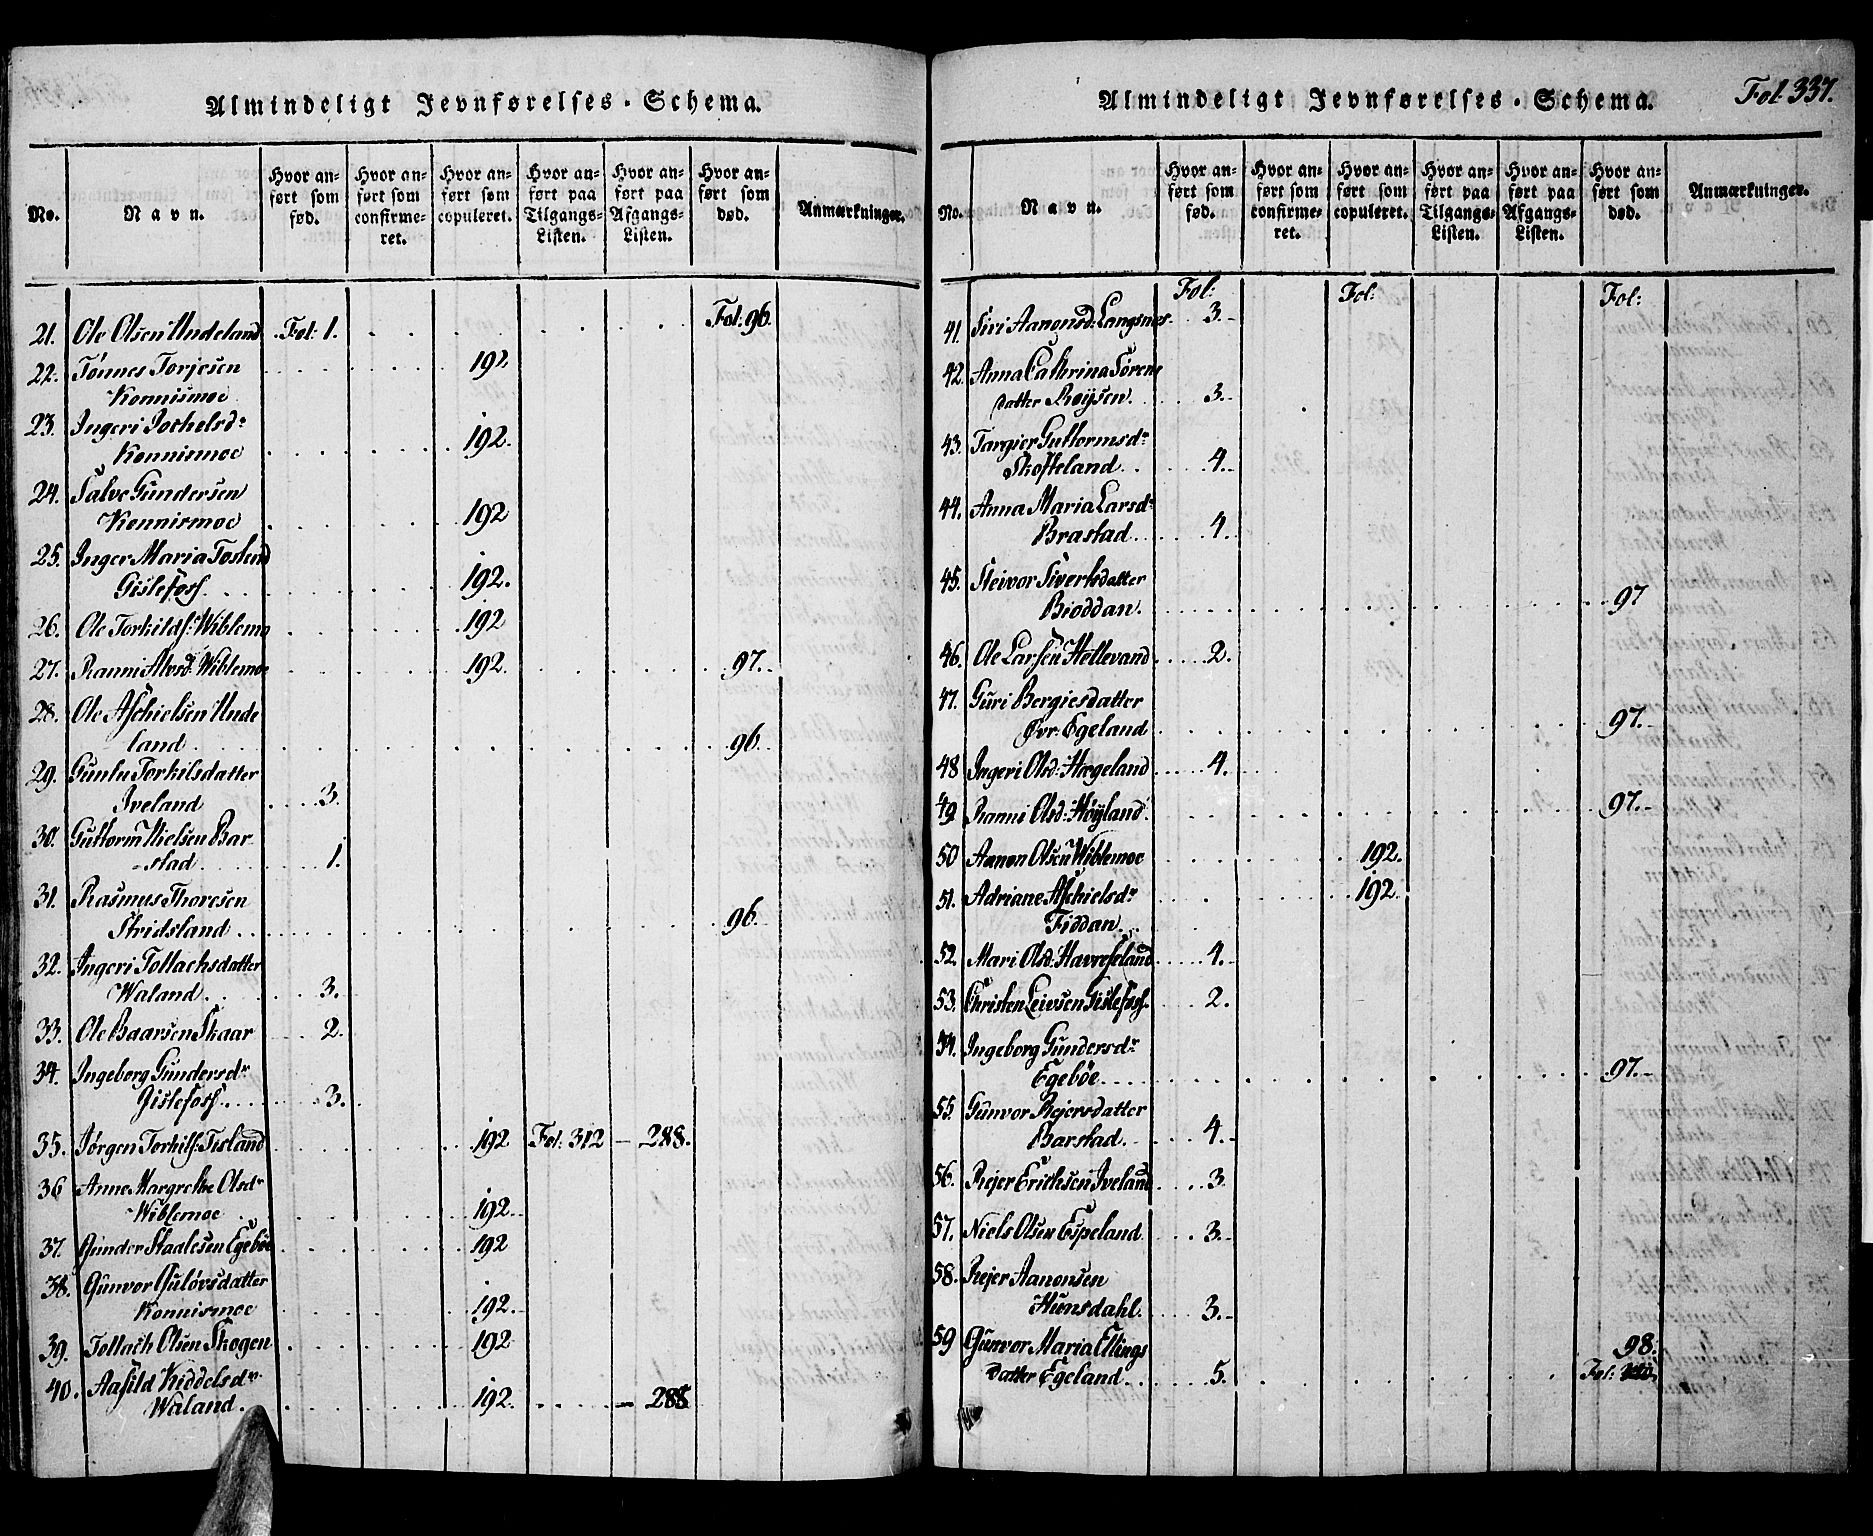 Almindeligt Jevnførelses-Schema.
No.
Navn.
Hvor an-
ført som
fød.
Hvor an-
ført som
confirme-
ret.
Hvor an-
ført som
copuleret.
Hvor an-
ført paa
Tilgangs-
Listen.
Hvor an-
ført paa
Afgangs-
Listen.
Hvor an-
ført som
død.
Anmærkninger.
21. Ole Olsen Undeland Fol: 1. Fol: 96.
22. Tønnes Torjesen 192
Konnismoe
23. Ingeri Jochelsdr
Konnismoe 192.
24. Salve Gundersen
Konnismoe 192
25. Inger Maria Toslend
Gislefoss 192.
26. Ole Torkilds: Wiblemo 192
27. Ranni Alvsd: Wiblemoe 192. 97.
28. Ole Aschielsen Unde
land 96.
29. Gunlu Torkilsdatter
Iveland 3.
30. Guttorm Nielsen Bar-
-stad 1.
31. Rasmus Thoresen
Stridsland 96.
32. Ingeri Tollachsdatter
Waland 3.
33. Ole Baarsen Skaar 2.
34. Ingeborg Gundersdr
Gislefoss 3.
35. Jørgen Torkils: Tisland 192 Fol: 312 – 288.
36 Anne Margrethe Olsdr
Wiblemoe 192.
37. Gunder Staalesen Egebøe 192
38. Gunvor Guløvsdatter
Konnismoe 192.
39. Tollach Olsen Skogen 192
40. Aasild Kiddelsdr
Waland. 192. – 288
Almindeligt Jevnførelses-Schema.
Fol. 337.
No.
Navn.
Hvor an-
ført som
fød.
Hvor an-
ført som
confirme-
ret.
Hvor an-
ført som
copuleret.
Hvor an-
ført paa
Tilgangs-
Listen.
Hvor an-
ført paa
Afgangs-
Listen.
Hvor an-
ført som
død.
Anmærkninger.
Fol: Fol: Fol:
41. Siri Aanonsd: Langsnes 3.
42. Anna Cathrina Sørens
datter Røysen. 3.
43. Targier Guttormsdr
Skofteland 4.
44. Anna Maria Larsdr
Brastad 4.
45. Steivor Siverts datter
Bioddan. 97
46. Ole Larsen Hellevand 2.
47. Guri Bergiesdatter
Øvr: Egeland 97.
48 Ingeri Olsd: Hægeland 4.
49 Ranni Olsd: Høyland 97.
50 Aanon Olsen Wiblemoe 192.
51. Adriane Aschielsdr 192.
Fiddan
52. Mari Olsd: Havreseland 4.
53. Christen Leivsen Gislefoss. 2.
54. Ingeborg Gundersdr
Egebøe 97.
55. Gunvor Rejersdatter
Barstad. 4.
56. Rejer Erichsen Iveland 3.
57. Niels Olsen Espeland 3.
58. Rejer Aanonsen
Hunsdahl. 3.
59 Gunvor Maria Ellings 98.
datter Egeland 5. Fol: